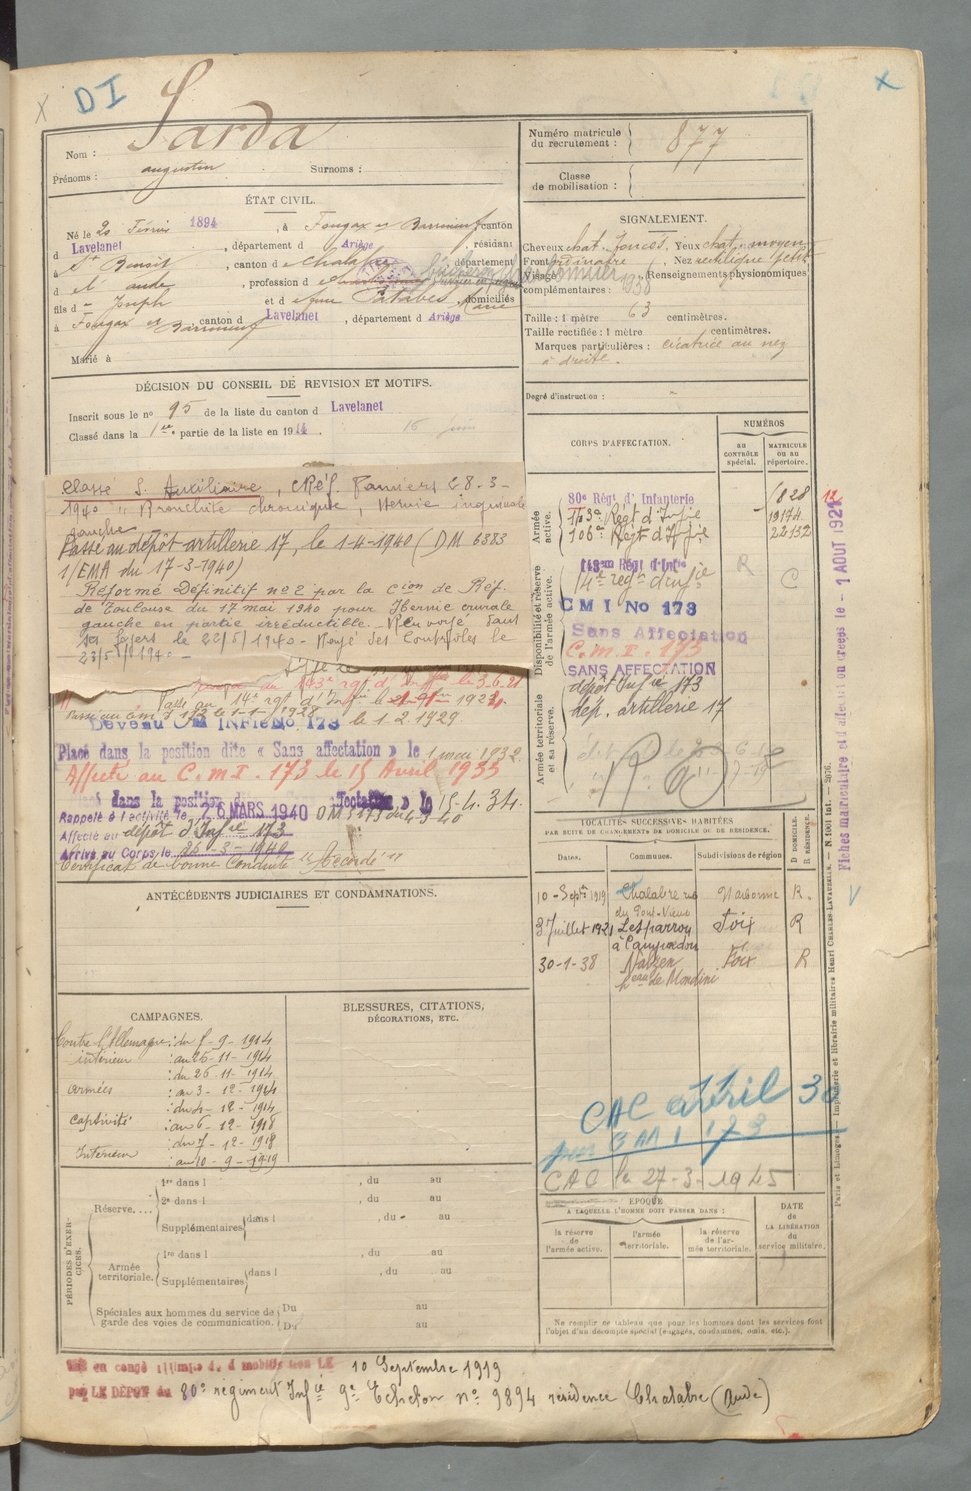 DI
Nom : Sarda
Prénoms : augustin Surnoms :
Numéro matricule du recrutement : 877
Classe de mobilisation :
ÉTAT CIVIL.
Né le 20 Février 1894, à Fougax et Barrineuf, canton
d Lavelanet, département d Ariège, résidant
à St Benoit, canton de Chalabre, département
d el aude, profession d
fils d Joseph et d domiciliés
à Fougax et Barrineuf, canton d Lavelanet, département d Ariège
Marié à
SIGNALEMENT.
Cheveux chat. foncés. Yeux chat. moyen
Front ordinaire, Nez rectiligne petit
Visage Renseignements physionomiques
complémentaires : 1938
Taille : 1 mètre 63 centimètres.
Taille rectifiée : 1 mètre centimètres.
Marques particulières : cicatrice au nez
à droite.
Degré d'instruction :
DÉCISION DU CONSEIL DE REVISION ET MOTIFS.
Inscrit sous le no 95 de la liste du canton d Lavelanet
Classé dans la 1ere partie de la liste en 1914.
Classé S. Auxiliaire, CRéf. Pamiers 28-3-
1940 "Bronchite chronique, Hernie inguinale
gauche
Passé au dépôt artillerie 17, le 1-4-1940 (DM 6383
1/EMA du 17-3-1940)
Réformé Définitif no 2 par la Cion de Réf.
de Toulouse du 17 mai 1940 pour Hernie crurale
gauche en partie irréductible. Renvoyé dans
ses foyers le 22/5/1940 - Rayé des Contrôles le
23/5/1940 -
Passé au 14e rgt d'Inf
Devenu CM INFie No 173 le 1.2.1929.
Placé dans la position dite « Sans affectation » le 1 mai 1932.
Affecté au C.M.I. 173 le 15 Avril 1933
Placé dans la position d affectation » le 15-4-34.
Rappelé à l'activité le 26 MARS 1940
Affecté au dépôt d'Infie 173
Arrivé au Corps le 26-3-1940
Certificat de bonne Conduite "Accordé"
CORPS D'AFFECTATION.
NUMÉROS
AU CONTRÔLE spécial.
MATRICULE ou au répertoire.
Armée active.
80e Régt d'Infanterie
Régt d'Infie 19174
106e Régt d'Infie 22132
Disponibilité et réserve de l'armée active.
143em Régt d'Infie
14e regt d'infie
R
C
CMI No 173
Sans Affectation
C.M.I. 173
SANS AFFECTATION
Armée territoriale et sa réserve.
dépôt Infie 173
dep. artillerie 17
Fiches matriculaire et d'affectation créées le - 1 AOUT 1921
LOCALITÉS SUCCESSIVES HABITÉES
PAR SUITE DE CHANGEMENTS DE DOMICILE OU DE RÉSIDENCE.
Dates. Communes. Subdivisions de région
D DOMICILE. R RÉSIDENCE.
10-Septre 1919 Chalabre rue du Pont-Vieux Narbonne R.
3 Juillet 1921 Lesparrou à Campredon Foix R
30-1-38 Nalzen hau de Mondini Foix R
ANTÉCÉDENTS JUDICIAIRES ET CONDAMNATIONS.
CAMPAGNES.
Contre l'Allemagne : du 5-9-1914
intérieur : au 25-11-1914
: du 26-11-1914
armées : au 3-12-1914
: du 4-12-1914
Captivité : au 6-12-1918
: du 7-12-1918
Intérieur : au 10-9-1919
BLESSURES, CITATIONS,
DÉCORATIONS, ETC.
CAC avril 30
CAC le 27-3-1945
PÉRIODES D'EXERCICES.
Réserve....
1re dans l , du au
2e dans l , du au
Supplémentaires dans l , du au
Armée territoriale.
1re dans l , du au
Supplémentaires dans l , du au
Spéciales aux hommes du service de garde des voies de communication.
Du au
Du au
ÉPOQUE
A LAQUELLE L'HOMME DOIT PASSER DANS :
la réserve de l'armée active.
l'armée territoriale.
la réserve de l'armée territoriale.
DATE de LA LIBÉRATION du service militaire.
Ne remplir ce tableau que pour les hommes dont les services font
l'objet d'un décompte spécial (engagés, condamnés, omis, etc.).
Paris et Limoges. — Imprimerie et librairie militaires Henri CHARLES-LAVAUZELLE. — N. 1001 int. — 2076.
Mis en congé illimité de démobilisation LE 10 Septembre 1919
par LE DÉPOT du 80e régiment Infie 9e Echelon no 9894 résidence Chalabre (Aude)